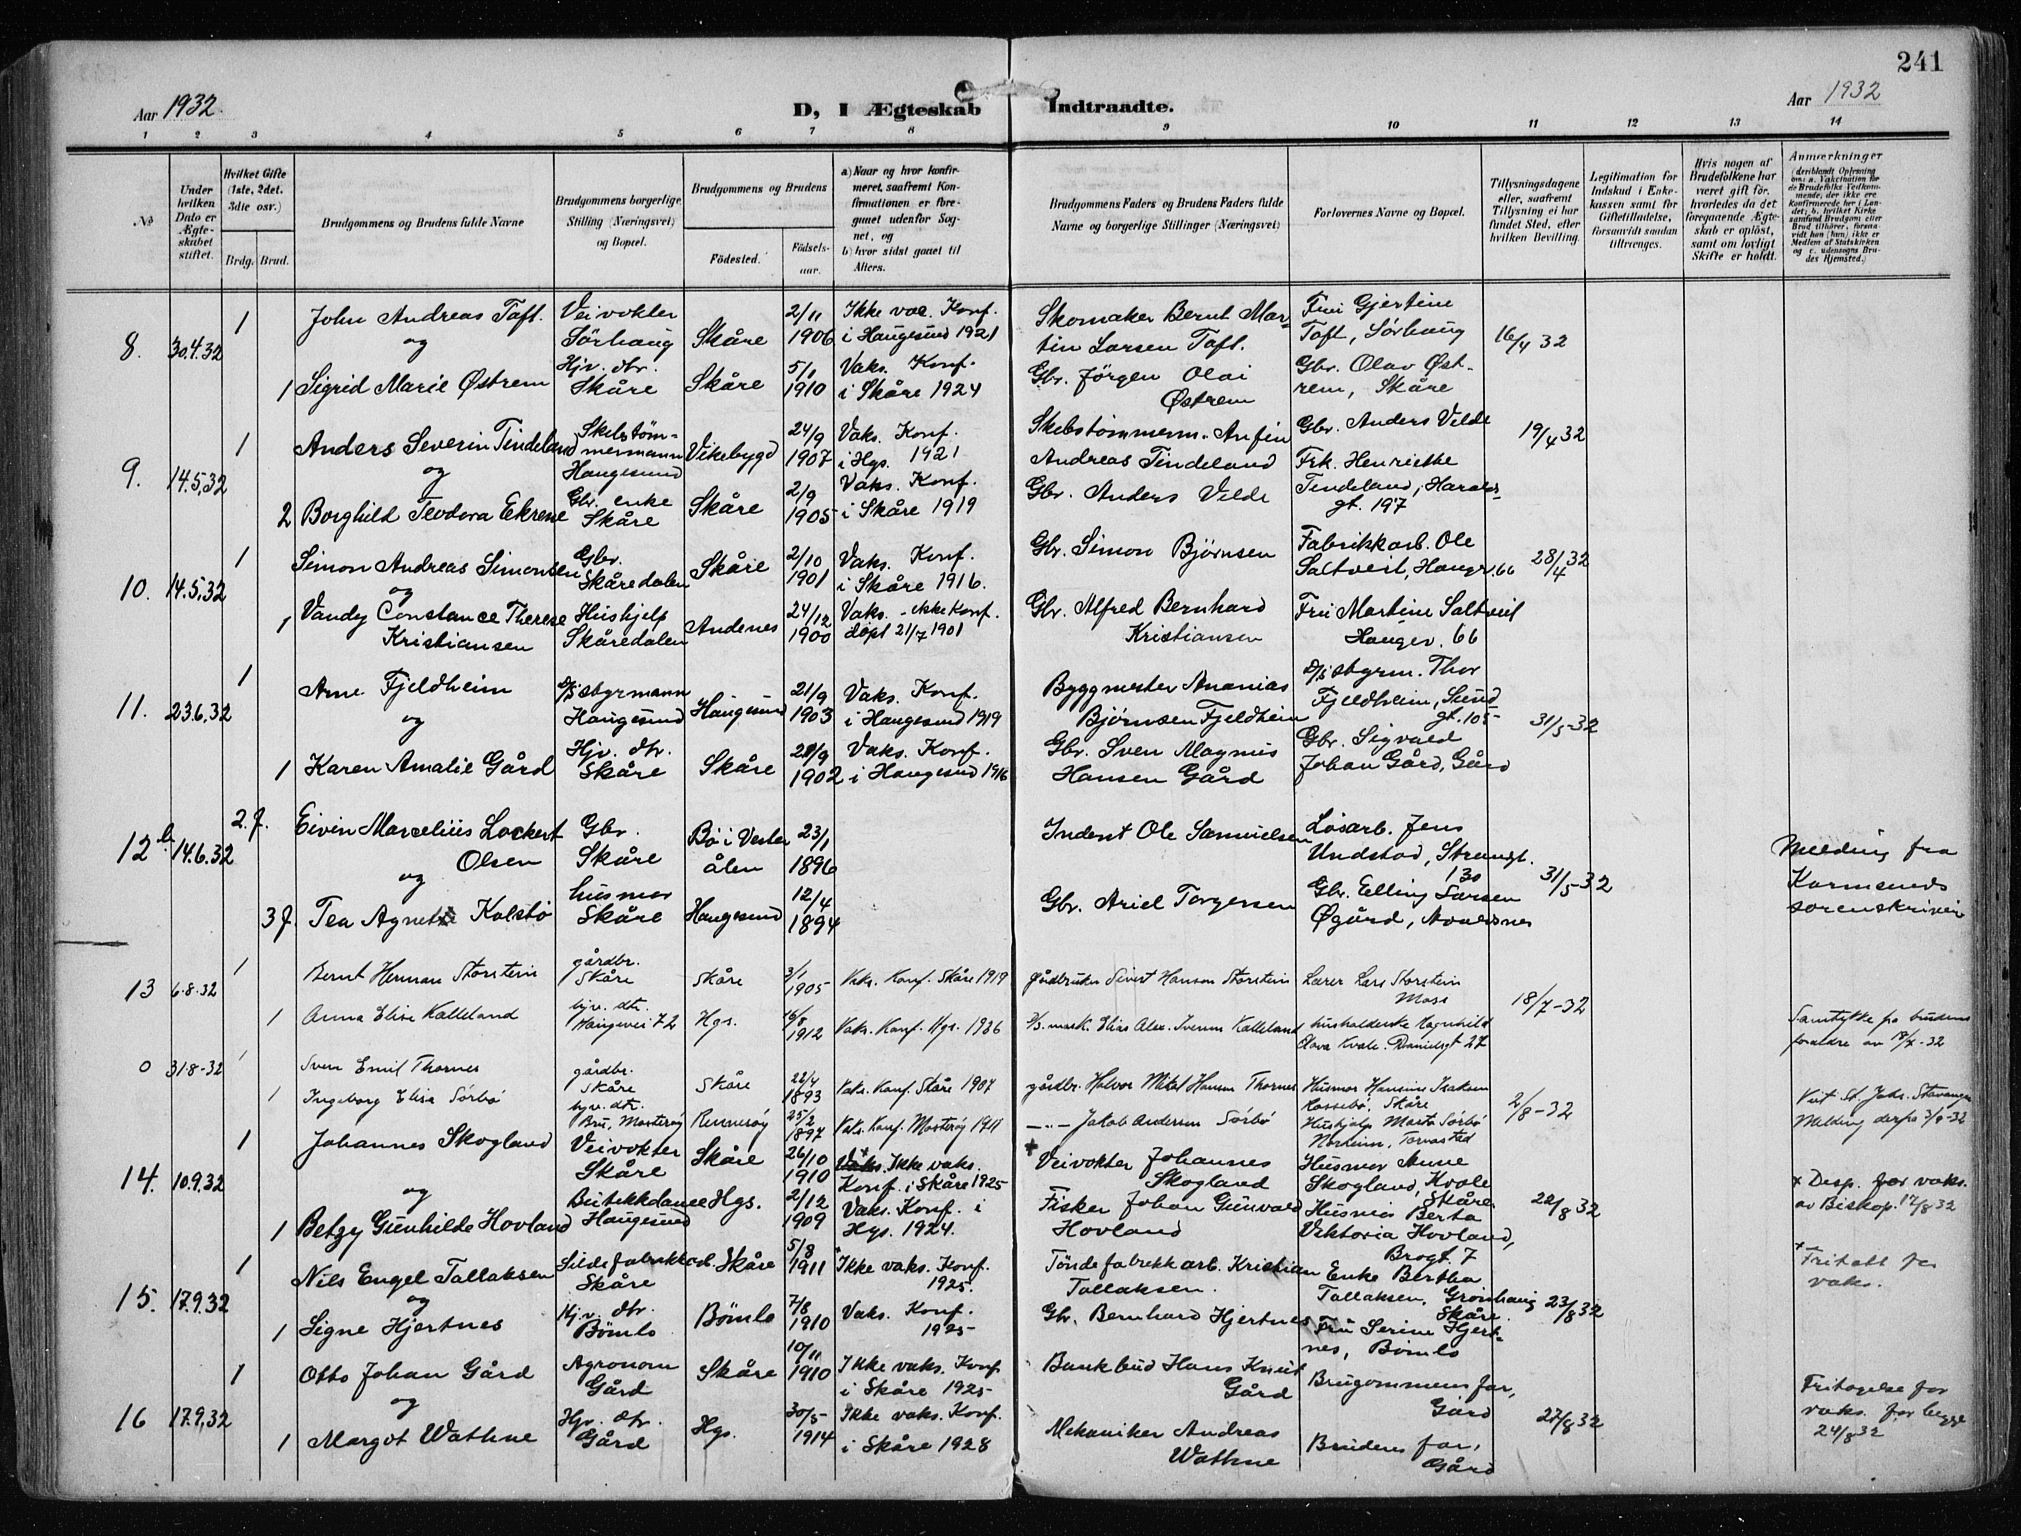 241
Aar 1932.
D, I Ægteskab Indtraadte.
Aar 1932
1 2 3 4 5 6 7 8 9 10 11 12 13 14
No
Under hvilken Dato er Ægteskabet stiftet.
Hvilket Gifte (1ste, 2det. 3die osv.)
Brdg. Brud.
Brudgommens og Brudens fulde Navne
Brudgommens borgerlige Stilling (Næringsvei) og Bopæl.
Brudgommens og Brudens
Fødested.
Fødselsaar.
a) Naar og hvor konfirmeret, saafremt Konfirmationen er foregaaet udenfor Sognet, og
b) hvor sidst gaaet til Alters.
Brudgommens Faders og Brudens Faders fulde Navne og borgerlige Stillinger (Næringsvei)
Forlovernes Navne og Bopæl.
Tillysningsdagene eller, saafremt Tillysning ei har fundet Sted, efter hvilken Bevilling.
Legitimation for Indskud i Enkekassen samt for Giftetilladelse, forsaavidt saadan tiltrænges.
Hvis nogen af Brudefolkene har været gift før, hvorledes da det foregaaende Ægteskab er opløst, samt om lovligt Skifte er holdt.
Anmærkninger
8. 30.4.32 1 John Andreas Toft. Veivokter Sørhaug Skåre 2/11 1906 Ikke vac. Konf. i Haugesund 1921 Skomaker Bernt Martin Larsen Toft. Fru Gjertine Toft, Sørhaug 16/4 32
og
1 Sigrid Marie Østrem Hjv. dtr. Skåre Skåre 5/1 1910 Vaks. Konf. i Skåre 1924 Gbr. Jørgen Olai Østrem Gbr. Olav Østrem, Skåre
9. 14.5.32 1 Anders Severin Tindeland Skibstømmermann Haugesund Vikebygd 24/9 1907 Vaks. Konf. i Hgs. 1921 Skibstømmerm. Anfin Andreas Tindeland Gbr. Anders Velde 19/4 32
og
2 Borghild Teodora Ekrene Gbr. enke Skåre Skåre 2/9 1905 Vaks. Konf. i Skåre 1919 Gbr. Anders Velde Frk. Henriette Tindeland, Haraldsgt. 197
10. 14.5.32 1 Simon Andreas Simonsen Gbr. Skåredalen Skåre 2/10 1901 Vaks. Konf. i Skåre 1916. Gbr. Simon Bjørnsen Fabrikkarb. Ole Saltveit, Haugv. 66 28/4 32
og
1 Vandy Constance Therese Kristiansen Hushjelp Skåredalen Andenes 24/12 1900 Vaks. - ikke Konf. døpt 21/7 1901 Gbr. Alfred Bernhard Kristiansen Fru Martine Saltveit Haugev. 66
11. 23.6.32 1 Arne Fjeldheim D/S styrmann Haugesund Haugesund 21/9 1903 Vaks. Konf. i Haugesund 1919 Byggmester Ananias Bjørnsen Fjeldheim D/S styrm. Thor Fjeldheim, Sundgt. 105 31/5-32
og
1 Karen Amalie Gård Hjv. dtr. Skåre Skåre 1902 Vaks. Konf. i Haugesund 1916 Gbr. Sven Magnus Hansen Gård Gbr. Sigvald Johan Gård, Gård
12 b 14.6.32 2.f. Eivin Marcelius Lockert Olsen Gbr. Skåre Bø i Vesterålen 23/1 1896 Inderst Ole Samuelsen Løsarb. Jens Undstad, Strandgt. 130 31/5-32 Melding fra Karmsunds sorenskriver
og
3 f. Tea Agnete Kolstø husmor Skåre Haugesund 12/4 1894 Gbr. Ariel Torgersen Gbr. Elling Larsen Øgård, Avaldsnes
13 6-8-32 1 Bernt Herman Storstein gårdbr. Skåre Skåre 3/1 1905 Vaks. Konf. Skåre 1919 gårdbruker Sivert Hanson Storstein Lærer Lars Storstein Moss 18/7-32
1 Anna Elise Kalleland hjv. dtr. Haugevei 72 Hgs. 16/8 1912 Vaks. Konf. Hgs. 1926 Elias Alex. Iversen Kalleland husholderske Magnhild Olava Kvale Samtykke fra brudens foreldre av 18/7-32
0 31-8-32 1 Sven Emil Thornes gårdbr. Skåre Skåre 22/4 1893 Vaks. Konf. Skåre 1907 gårdbr. Halvor Mikal Hansen Thornes Husmor Hansine Isaksen Rossebø, Skåre 2/8-32
1 Ingeborg Elisa Sørbø hjv. dtr. Bru, Mosterøy Rennesøy 25/2 1897 Vaks. Konf. Mosterøy 1911 -"- Jakob Andersen Sørbø Hushjelp Marta Sørbø Norheim, Torvastad Viet St. Joh. Stavanger Melding derfra 3/9-32
14. 10.9.32 1 Johannes Skogland Veivokter Skåre Skåre 26/10 1910 Vaks. Ikke vaks. Konf. i Skåre 1925 + Veivokter Johannes Skogland Husmor Anne Skogland, Kvale Skåre 22/8 32 + Disp. for vaks. av Biskop. 17/8 32
og
1 Betzy Gunhilde Hovland Butikkdame Haugesund Hgs. 2/12 1909 Vaks. Konf. i Hgs. 1924. Fisker Johan Gunvald Hovland Husmor Berta Viktoria Hovland, Brogt. 7
15. 17.9.32 1 Nils Engel Tallaksen Sildefabrikkarb. Skåre Skåre 5/8 1911 + Ikke vaks. Konf. 1925. Tøndefabrikkarb. Kristian Tallaksen. Enke Bertha Tallaksen, Grønhaug Skåre. 23/8 32 + Fritatt for vaks.
og
1 Signe Hjertnes Hjv. dtr. Bømlo Bømlo 7/8 1910 Vaks. Konf. 1925 Gbr. Bernhard Hjertnes Fru Serine Hjertnes, Bømlo
16 17.9.32 1 Otto Johan Gård Agronom Gård Skåre 10/11 1910 Ikke vaks. Konf. i Skåre 1925 Bankbud Hans Knut Gård Brugommens far, Gård 27/8 32 Fritagelse for vaks. for begge 24/8 32
og
1 Margot Wathne Hjv. dtr. Gård Hgs. 30/5 1914 Ikke vaks. Konf. i Skåre 1928 Mekaniker Andreas Wathne Brudens far, Gård